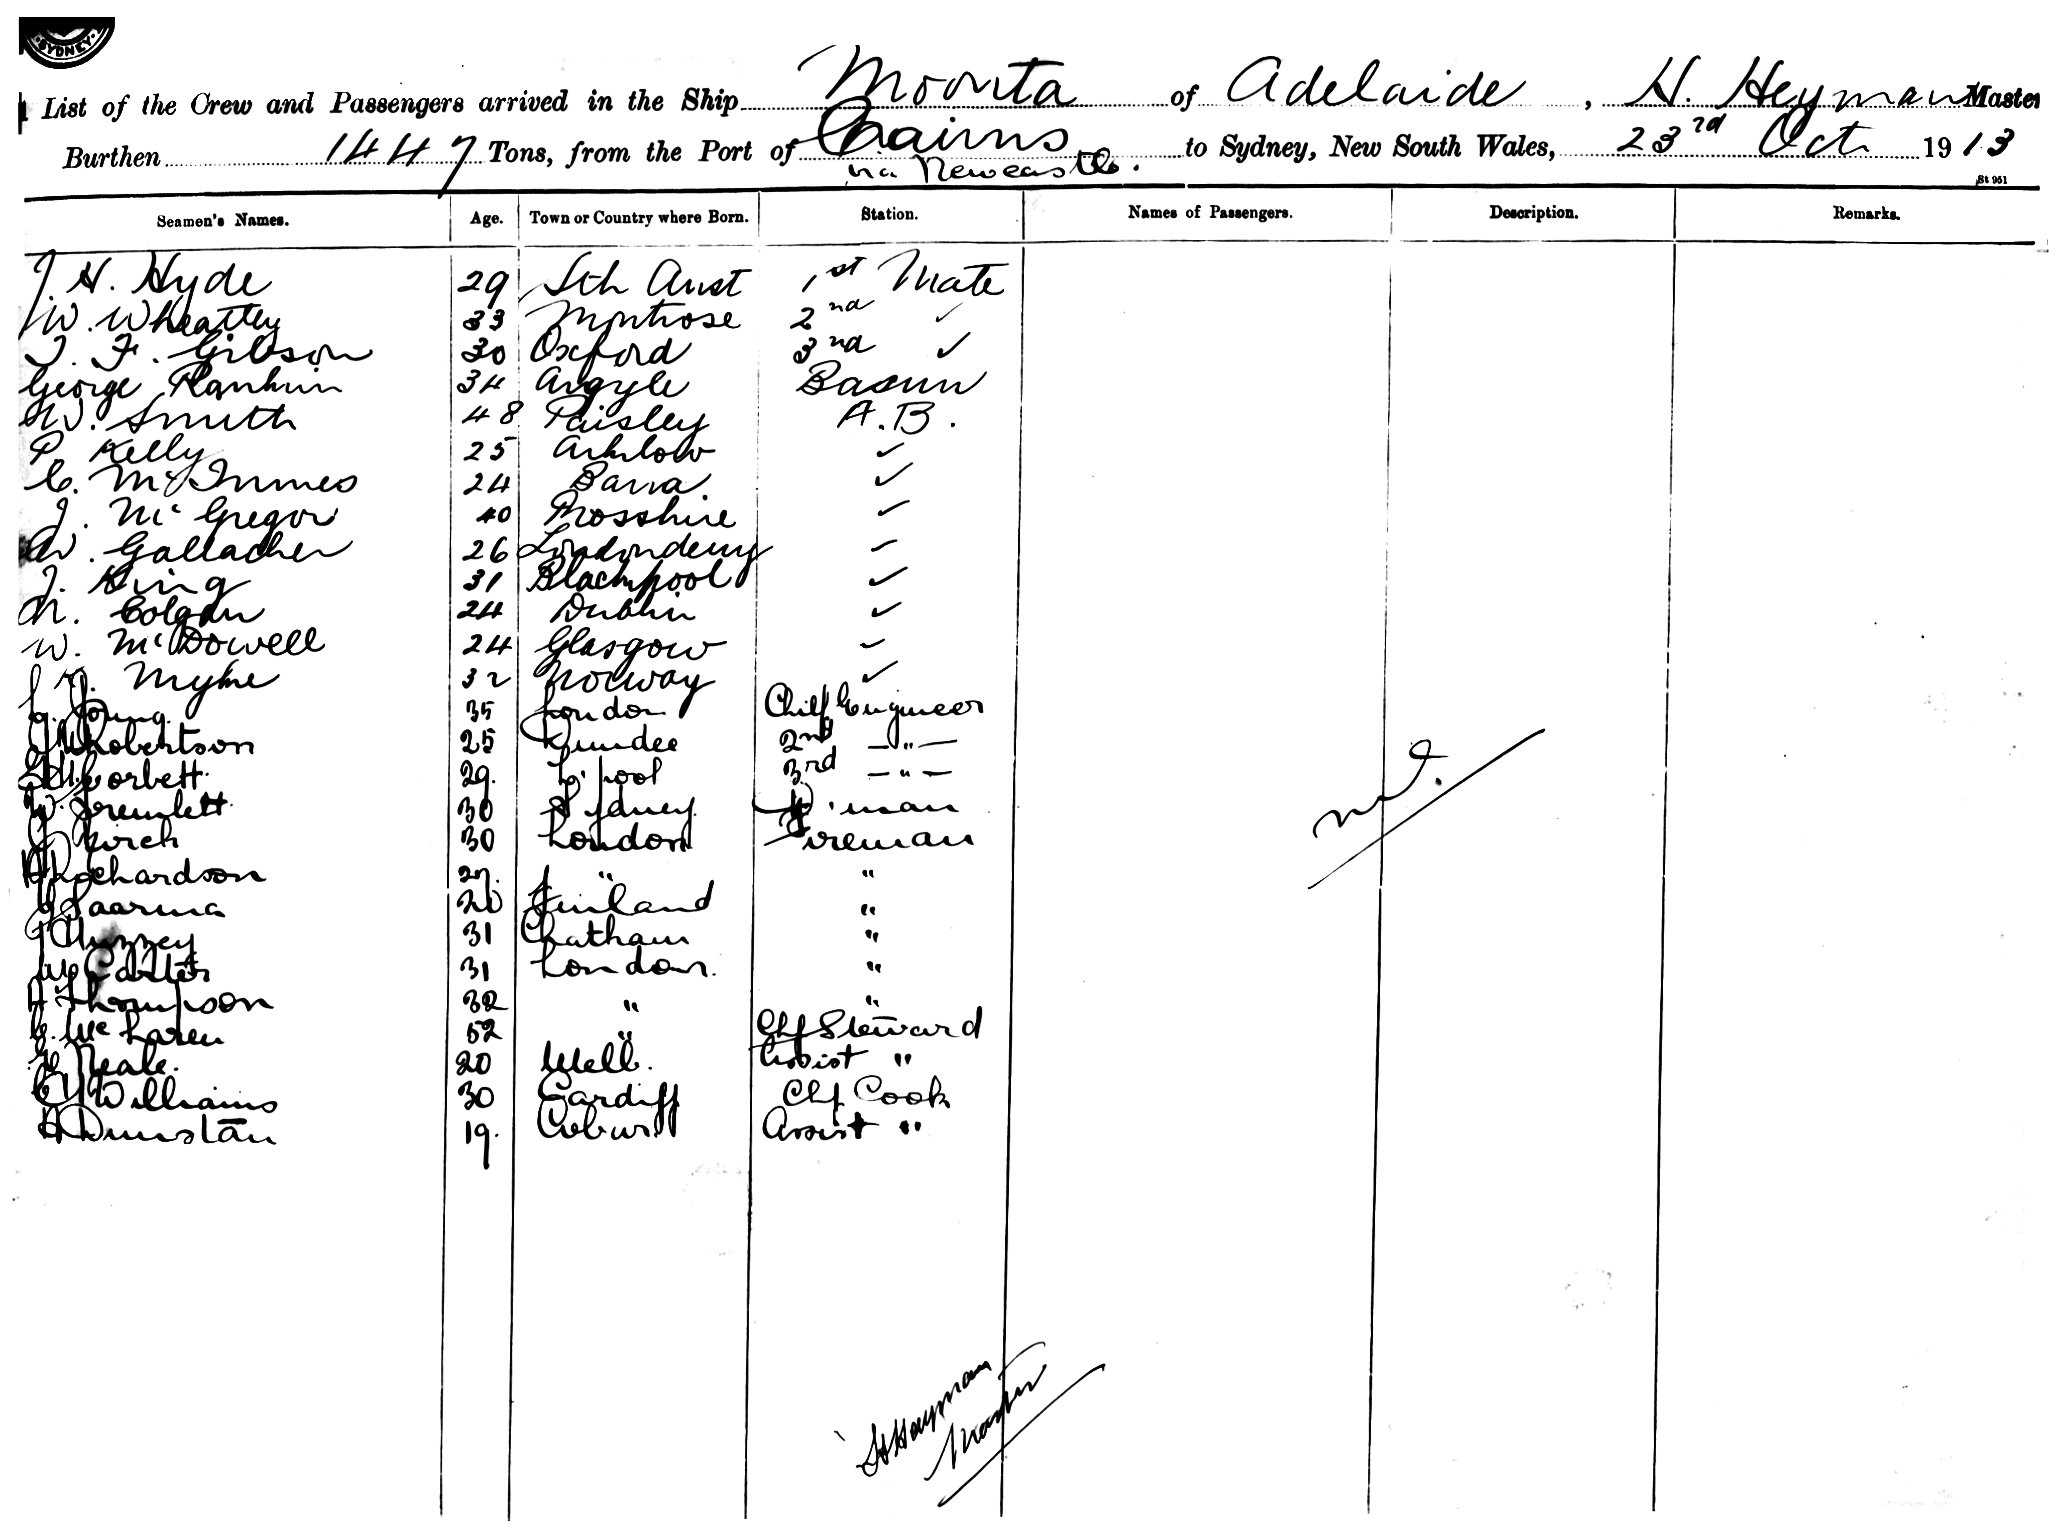 SYDNEY
List of the Crew and Passengers arrived in the Ship Moonta of Adelaide, H. Heyman Master
Burthen 1447 Tons, from the Port of Cairns to Sydney, New South Wales, 23rd Oct 1913
via Newcastle.
St 951
Seamen's Names. Age. Town or Country where Born. Station. Names of Passengers. Description. Remarks.
J. H. Hyde 29 Sth Aust 1st Mate
W. Wheatley 33 Montrose 2nd ✓
T. F. Gibson 30 Oxford 3rd ✓
George Rankin 34 Argyle Bosun
W. Smith 48 Paisley A.B.
P. Kelly 25 Arklow ✓
C. McInnes 24 Barra ✓
J. McGregor 40 Rosshire ✓
W. Gallacher 26 Londonderry ✓
J. King 31 Blackpool ✓
N. Colgan 24 Dublin ✓
W. McDowell 24 Glasgow ✓
Myhre 32 Norway ✓
G. Young 35 London Chief Engineer
Robertson 25 Dundee 2nd — " —
Corbett 29. L'pool 3rd — " —
W. Gremlett 30 Sydney 'man
Birch 30 London Fireman
Richardson 27. " "
Saarma Finland "
31 Chatham "
Carter 31 London. "
Thompson 32 " "
McLaren 52 " Chf Steward
Neale. 20 Melb. Assist "
Williams 30 Cardiff Chf Cook
H Dunstan 19. Coburg Assist "
nil.
H Heyman
Master